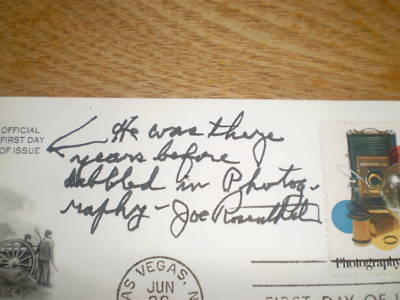 OFFICIAL
FIRST DAY
OF ISSUE
He was there
years before
dabbled in Photog-
raphy - Joe Rosenthal
Photography
AS VEGAS, N
JUN
FIRST DAY OF I